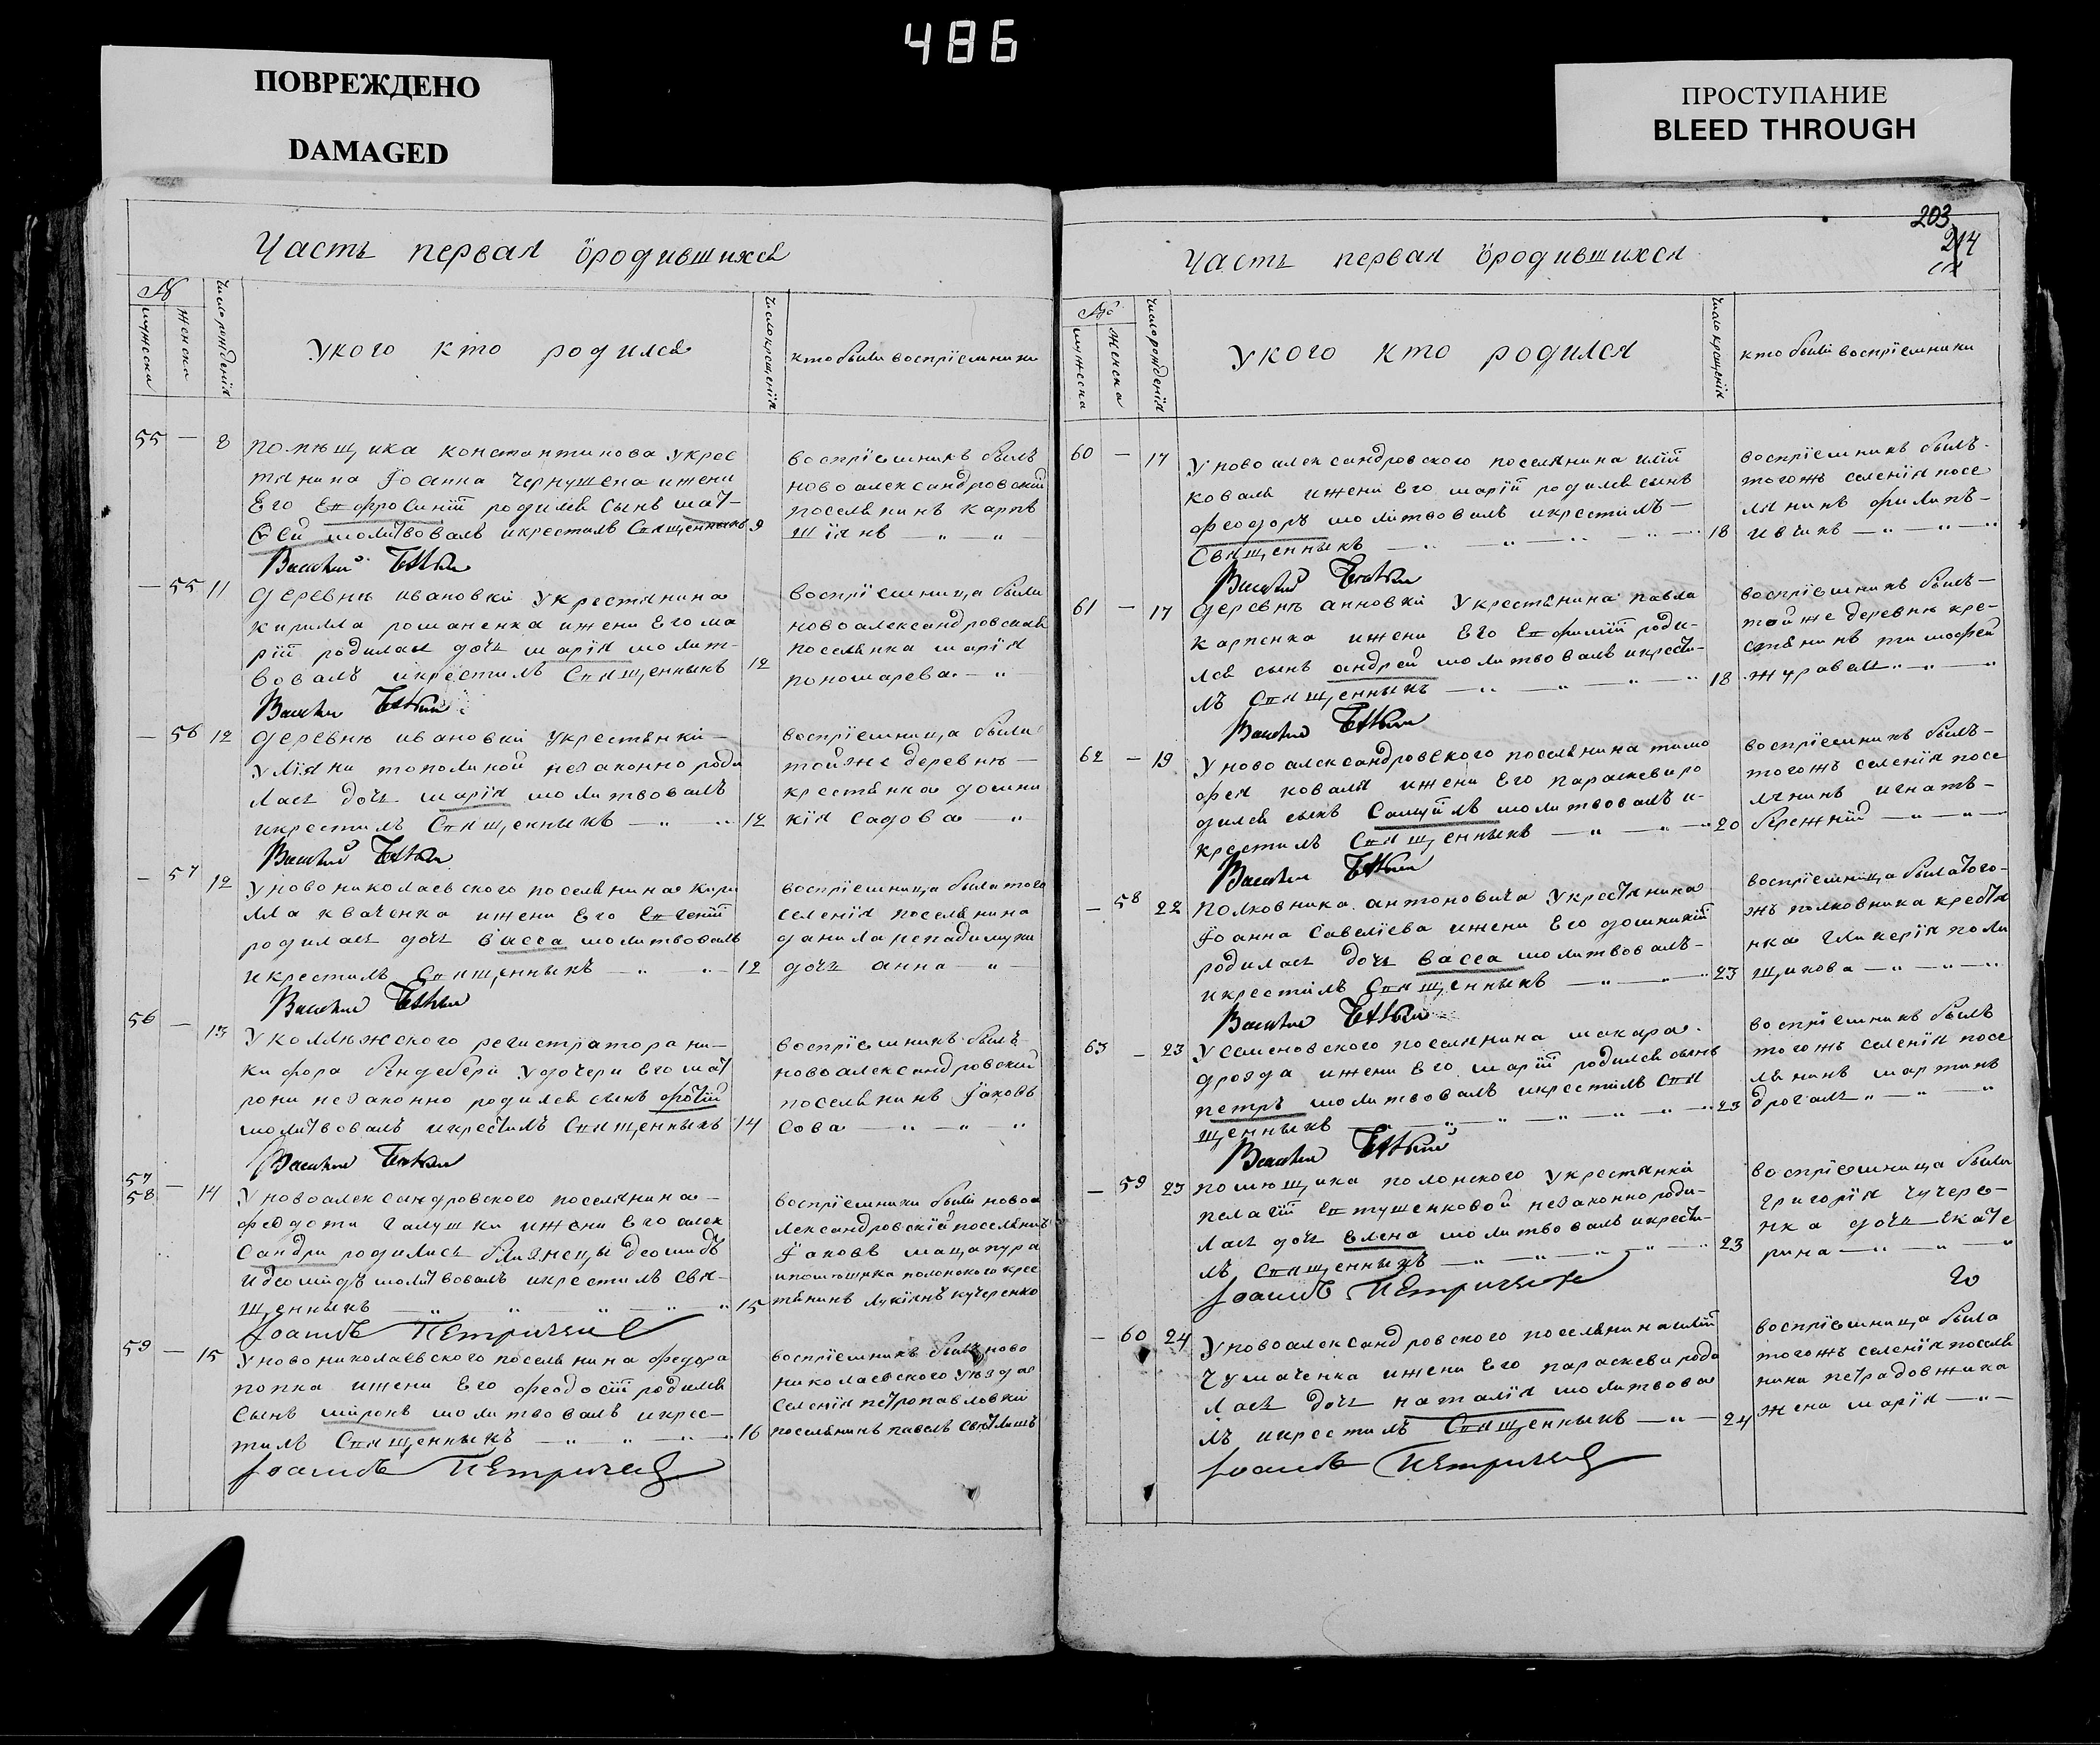 486
ПОВРЕЖДЕНО
DAMAGED
ПРОСТУПАНИЕ
BLEED THROUGH
Часть первая ородившихся
№
мужеска
женска
число рожденія
Укого кто родился
число крещенія
кто были воспріємники
55 — 8 помѣщика константинова укрес
тянина Іоанна Чернушена ижени
Его Еѵфросиніи родился сынъ мат-
ѳей молитвовалъ икрестилъ Священникъ 9
воспріємникъ былъ
новоалександровскій
поселянинъ карпъ
шіянъ
— 55 11 деревни ивановки укрестянина
кирилла романенка ижени Его ма
ріи родилась дочь марія молит-
вовалъ икрестилъ Священникъ 12
воспріємница была
новоалександровская
поселянка марія
пономарева
— 56 12 деревни ивановки укрестянки
уліяни тополиной незаконно роди
лась дочь марія молитвовалъ
икрестилъ Священникъ 12
воспріємница была
тойже деревни
крестянка домни
кія садова
— 57 12 Уновониколаевского поселянина кири
лла кваченка ижени Его Еѵгеніи
родилась дочь васса молитвовалъ
икрестилъ Священникъ 12
воспріємница была того
селенія поселянина
данила
дочь анна
56 — 13 Уколлѣжского регистратора ни-
кифора бендебери Удочери Его мат
рони незаконно родился сынъ фотій
молитвовалъ икрестилъ Священникъ 14
воспріємникъ былъ
новоалександровскій
поселянинъ Іаковъ
сова
57
58 — 14 Уновоалександровского поселянина
федота галушки ижени Его алек
сандри родились близнецы деомидъ
идеомидъ молитвовалъ икрестилъ свя-
щенникъ 15
воспріємники были новоа
лександровскій поселянинъ
Іаковъ мацапура
ипомѣщика полонского крес
тянинъ лукіянъ кучеренко
59 — 15 Уновониколаевского поселянина федора
попка ижени Его феодосіи родился
сынъ миронъ молитвовалъ икрес-
тилъ Священникъ 16
воспріємникъ былъ ново
николаевского уѣзда
селенія петропавловки
поселянинъ павелъ
203
214
Часть первая ородившихся
№
мужеска
женска
число рожденія
Укого кто родился
число крещенія
кто были воспріємники
60 — 17 Уновоалександровского поселянина иліи
коваля ижени Его маріи родился сынъ
феодоръ молитвовалъ икрестилъ
Священникъ 18
воспріємникъ былъ
тогожъ селенія посе
лянинъ филипъ
ивчикъ
61 — 17 деревнѣ анновки Укрестянина павла
карпенка ижени Его Еѵфиміи роди-
лся сынъ андрей молитвовалъ икрести-
лъ Священникъ 18
воспріємникъ былъ
тойже деревни кре-
стянинъ тимофей
журавель
62 — 19 Уновоалександровского поселянина тимо
фея коваля ижени Его параскеви ро
дился сынъ Самуилъ молитвовалъ и-
крестилъ Священникъ 20
воспріємникъ былъ
тогожъ селенія посе
лянинъ игнатъ
бережній
— 58 22 полковника антоновича Укрестянина
Іоанна Савеліева ижени Его домникіи
родилась дочь васса молитвовалъ
икрестилъ Священникъ 23
воспріємница была того-
жъ полковника крестя
нка гликерія поли
щукова
63 — 23 Усеменовского поселянина макара
дрозда ижени Его маріи родился сынъ
петръ молитвовалъ икрестилъ Свя
щенникъ 23
воспріємникъ былъ
тогожъ селенія посе
лянинъ мартинъ
дрогаль
— 59 23 помѣщика полонского Укрестянки
пелагіи Еѵтушенковой незаконно роди-
лась дочь елена молитвовалъ икрести-
лъ Священникъ 23
воспріємница была
григорія кучере-
нка дочь екате
рина
— 60 24 Уновоалександровского поселянина иліи
чумаченка ижени Его параскеви роди
лась дочь наталія молитвова
лъ икрестилъ Священникъ 24
воспріємница была
тогожъ селенія поселя
нина петра довжика
жена марія